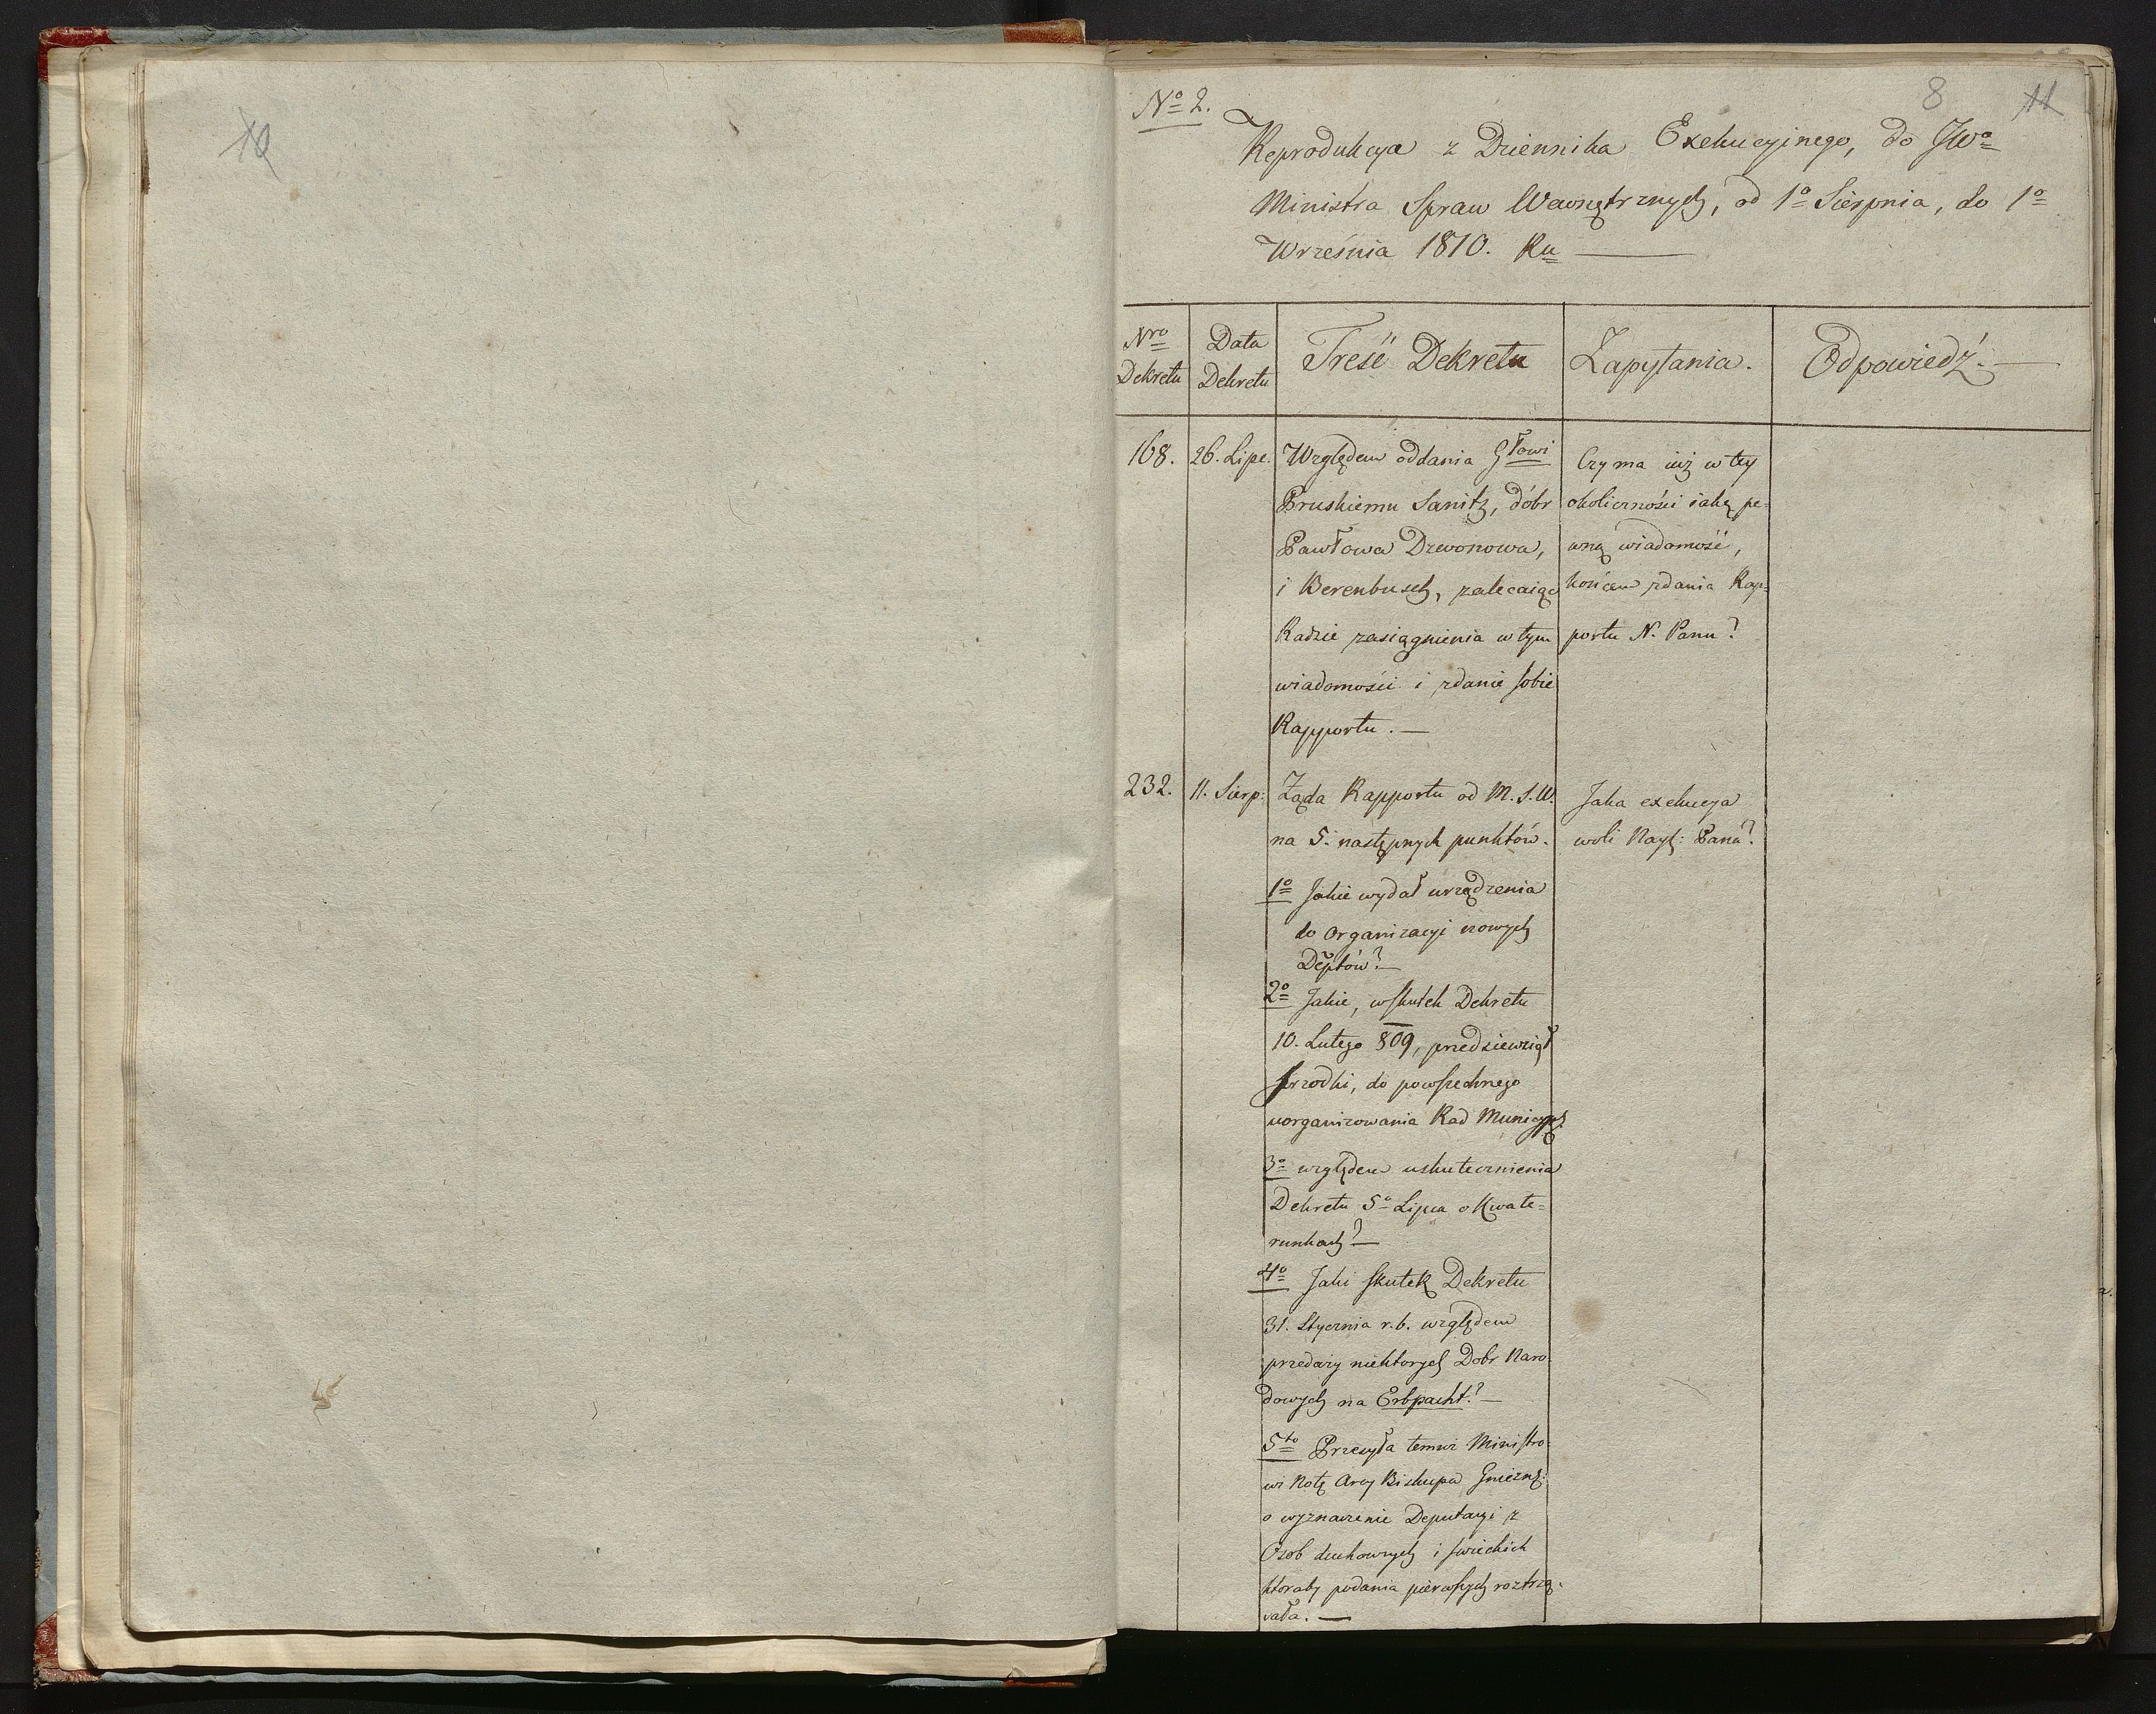 10
8 11
No 2.
Reprodukcya z Dziennika Exekucyjnego, do JWo
Ministra Spraw Wewnętrznych, od 1o Sierpnia, do 1o
Września 1810. Ru
Nro
Dekretu
Data
Dekretu
Treść Dekretu
Zapytania.
Odpowiedź.
168.
26. Lipc.
Względem oddania Głowi
Pruskiemu Sanitz, dóbr
Pawłowa Dzwonowa,
i Berenbusch, zalecaiąc
Radzie zasiągnienia w tym
wiadomości i zdanie sobie
Rapportu. —
Czy ma iuż w tey
okoliczności iaką pe-
wną wiadomość,
końcem zdania Rap-
portu N. Panu?
232.
11. Sierp:
Żąda Rapportu od M. S. W.
na 5. następnych punktów.
1o Jakie wydał urządzenia
do Organizacyi nowych
Deptów? —
2o Jakie, wskutek Dekretu
10. Lutego 809, przedsiewziął
srzodki, do powszechnego
uorganizowania Rad Municyp:
3o względem uskutecznienia
Dekretu 5o Lipca o Kwate-
runkach? —
4o Jaki skutek Dekretu
31. Stycznia r. b. względem
przedaży niektorych Dobr Naro-
dowych na Erbpacht? —
5to Przesyła temuż Ministro-
wi Notę Arcy Biskupa Gniezn:
o wyznaczenie Deputacyi z
Osob duchownych i swieckich
ktoraby podania pierwszych roztrzą-
sała. —
Jaka exekucya
woli Nayj: Pana?